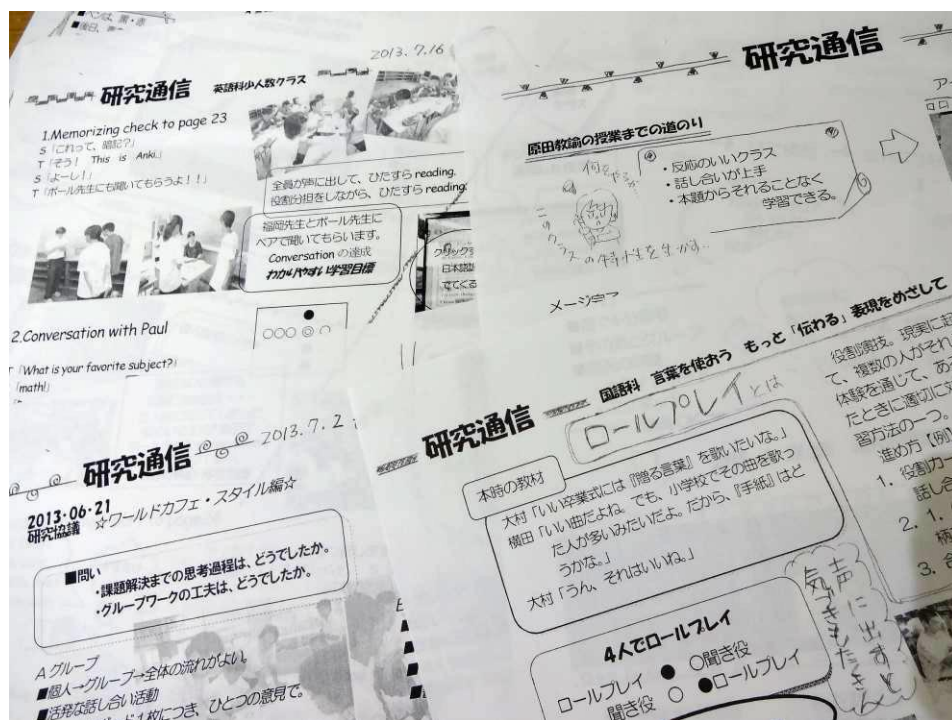 ■ペンは、黒・赤
■後日、
2013.7.16
研究通信 英語科少人数クラス
1.Memorizing check to page 23
S「これって、暗記?」
T「そう! This is Anki.」
S「よーし!」
T「ポール先生にも聞いてもらうよ!!」
全員が声に出して、ひたすら reading.
役割分担をしながら、ひたすら reading.
福岡先生とポール先生に
ペアで聞いてもらいます。
Conversation の達成
わかりやすい学習目標
クリックす
日本語
でてくる
2.Conversation with Paul
「What is your favorite subject?」
「math!」
研究通信
原田教諭の授業までの道のり
何をやるか
・反応のいいクラス
・話し合いが上手
・本題からそれることなく
学習できる。
このクラスの特性を生かす..
メージ
研究通信 2013.7.2
2013・06・21
研究協議 ☆ワールドカフェ・スタイル編☆
■問い
・課題解決までの思考過程は、どうでしたか。
・グループワークの工夫は、どうでしたか。
Aグループ
■個人→グループ→全体の流れがよい。
■活発な話し合い活動
ード1枚につき、ひとつの意見で。
研究通信 国語科 言葉を使おう もっと「伝わる」表現をめざして
ロールプレイとは
本時の教材
大村「いい卒業式には『贈る言葉』を歌いたいな。」
横田「いい曲だよね。でも、小学校でその曲を歌っ
た人が多いみたいだよ。だから、『手紙』はど
うかな。」
大村「うん、それはいいね。」
4人でロールプレイ
ロールプレイ ● ○聞き役
聞き役 ○ ●ロールプレイ
声に出すと
役割演技。現実に
て、複数の人がそれ
体験を通じて、あ
たときに適切に
習方法の一つ。
進め方【例
1. 役割カー
話し合
2. 1.
柄
3.